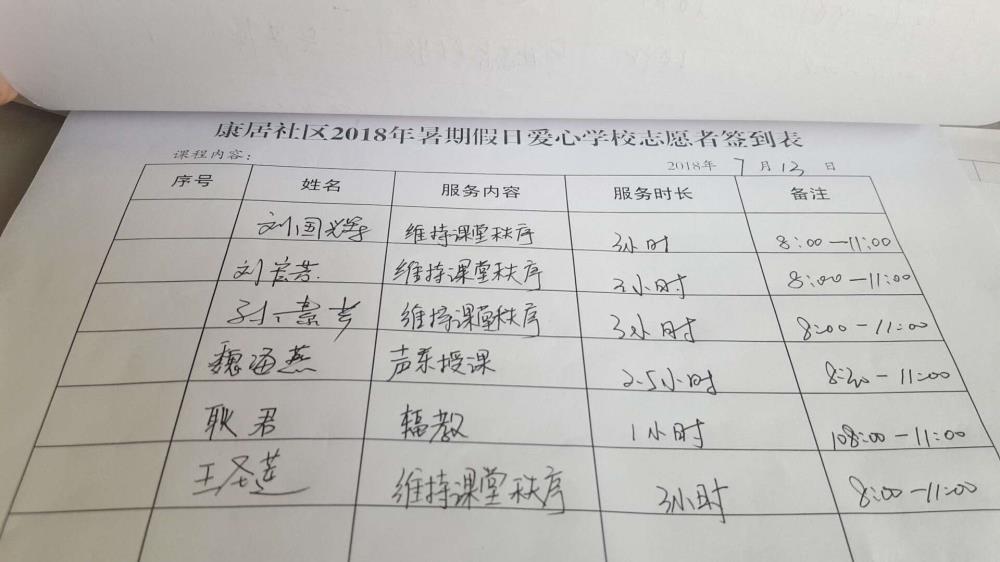 康居社区2018年暑期假日爱心学校志愿者签到表
课程内容： 2018年 7月13日
序号 姓名 服务内容 服务时长 备注
刘国辉 维持课堂秩序 3小时 8:00—11:00
刘宏芳 维持课堂秩序 3小时 8:00—11:00
维持课堂秩序 3小时 8:00—11:00
魏海燕 声乐授课 2.5小时 8:30—11:00
耿君 辐教 1小时 108:00—11:00
王圣莲 维持课堂秩序 3小时 8:00—11:00